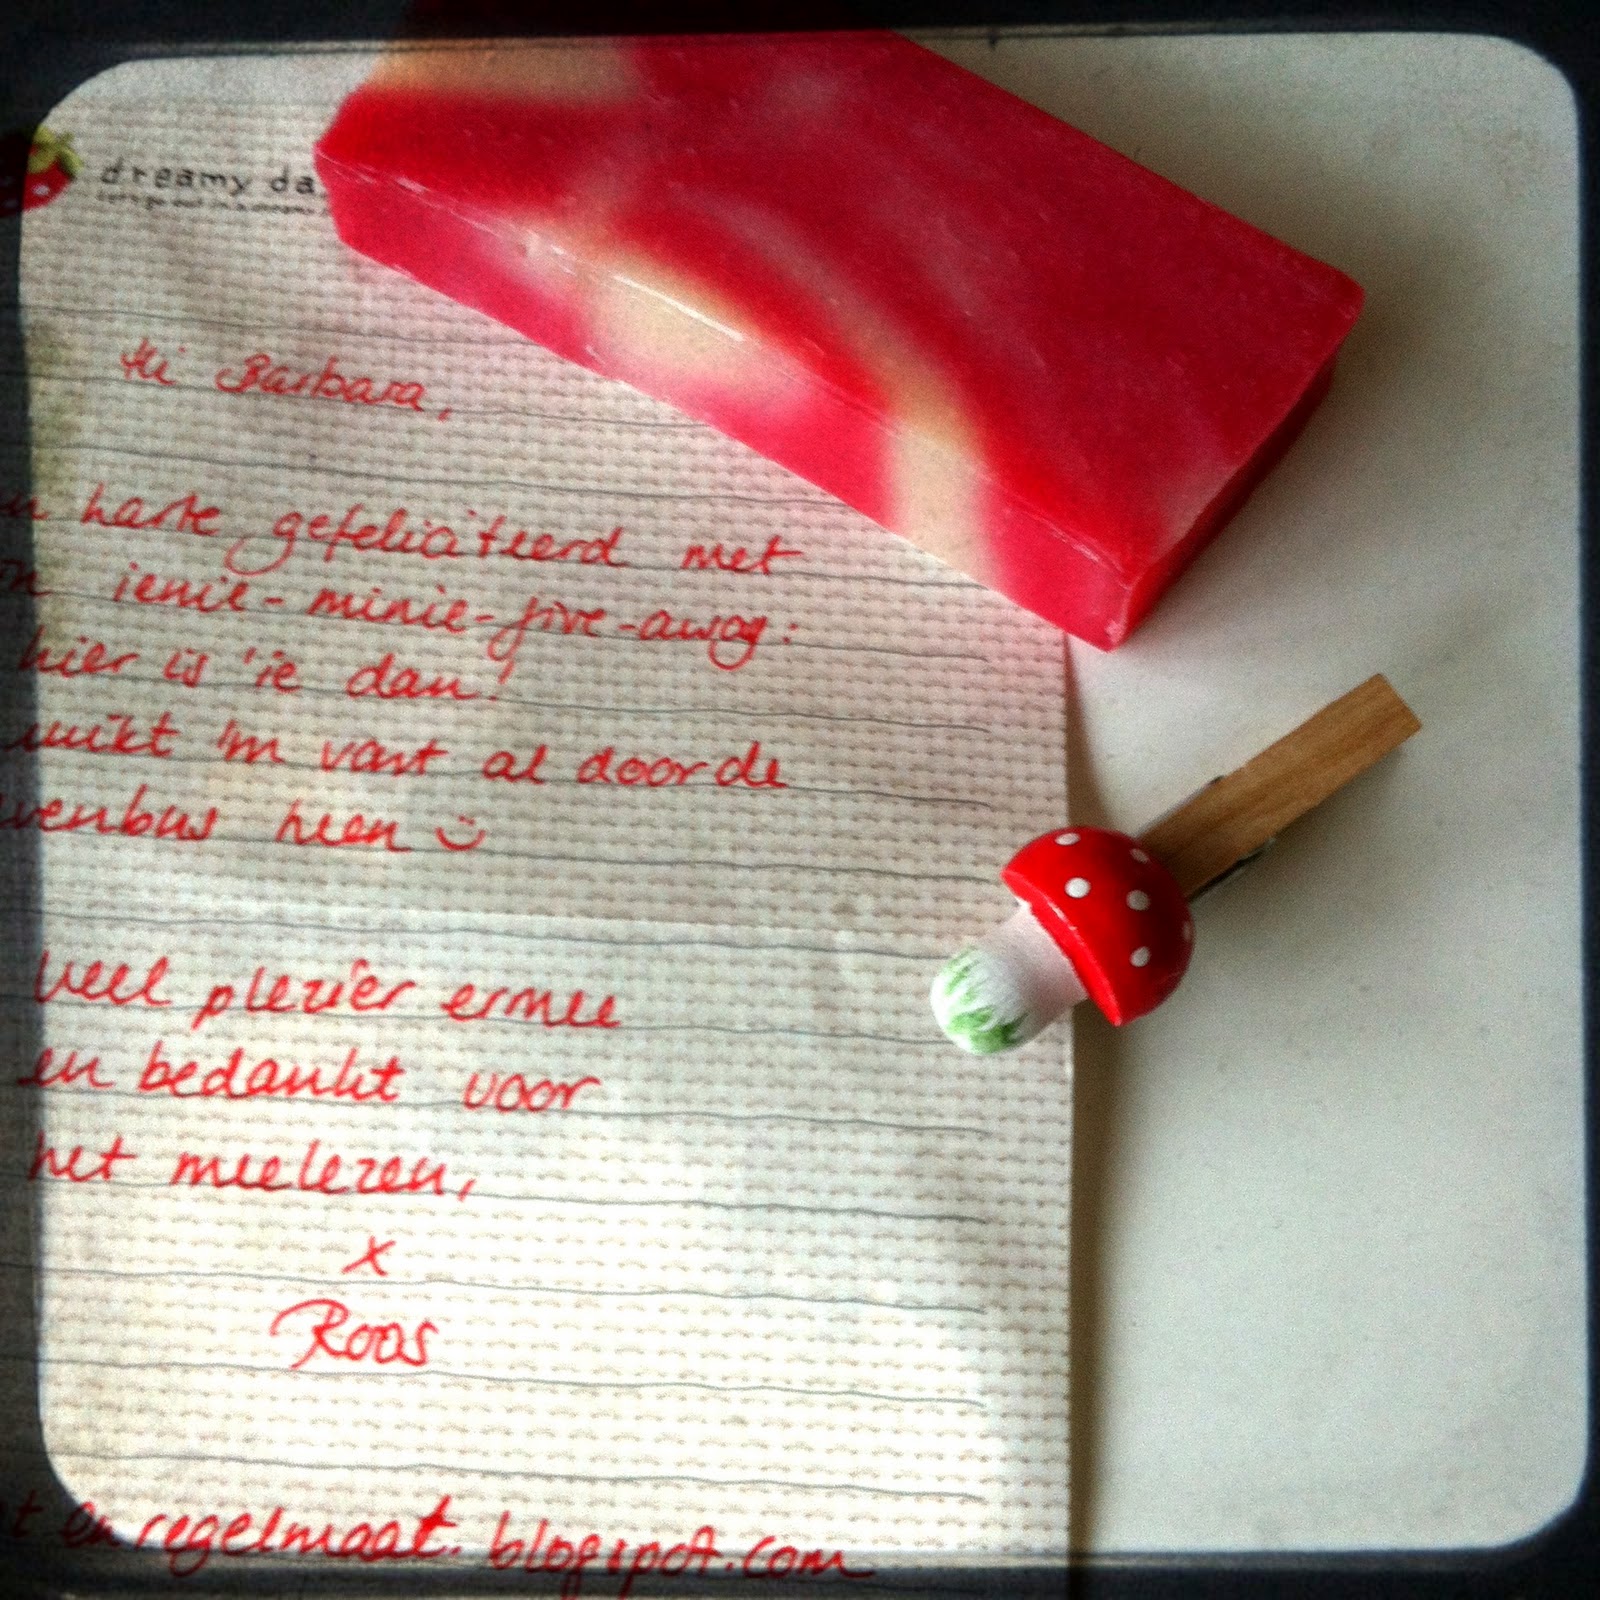 dreamy da
Hi Barbara,
harte gefeliciteerd met
ienie-minie-give-away:
hier is 'ie dan!
'm vast al door de
venbus heen
veel plezier ermee
en bedankt voor
het meelezen,
x
Roos
t en regelmaat.blogspot.com